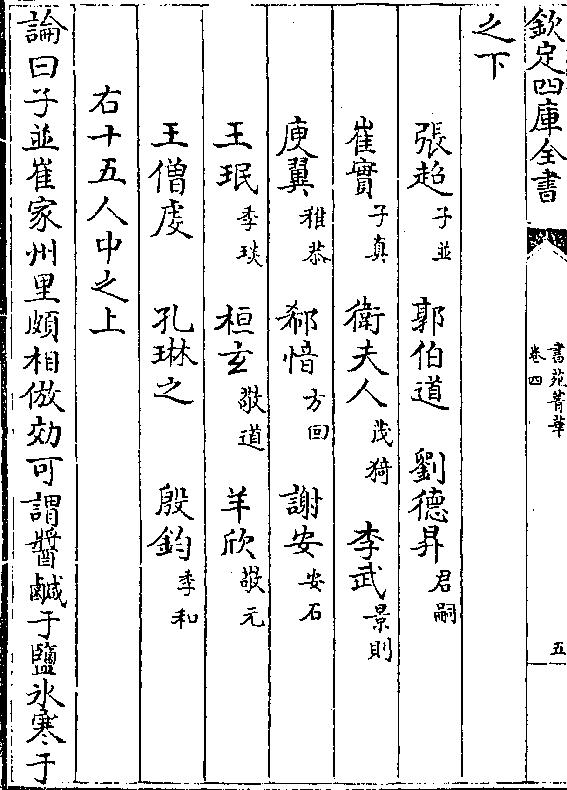 欽定四庫全書
書苑菁華
卷四
五
之下
張超子並 郭伯道 劉德昇君嗣
崔實子真 衛夫人茂猗 李武景則
庾翼雅恭 郗愔方回 謝安安石
王珉季琰 桓玄敬道 羊欣敬元
王僧虔 孔琳之 殷鈞季和
右十五人中之上
論曰子並崔家州里頗相倣効可謂醬鹹于鹽氷寒于